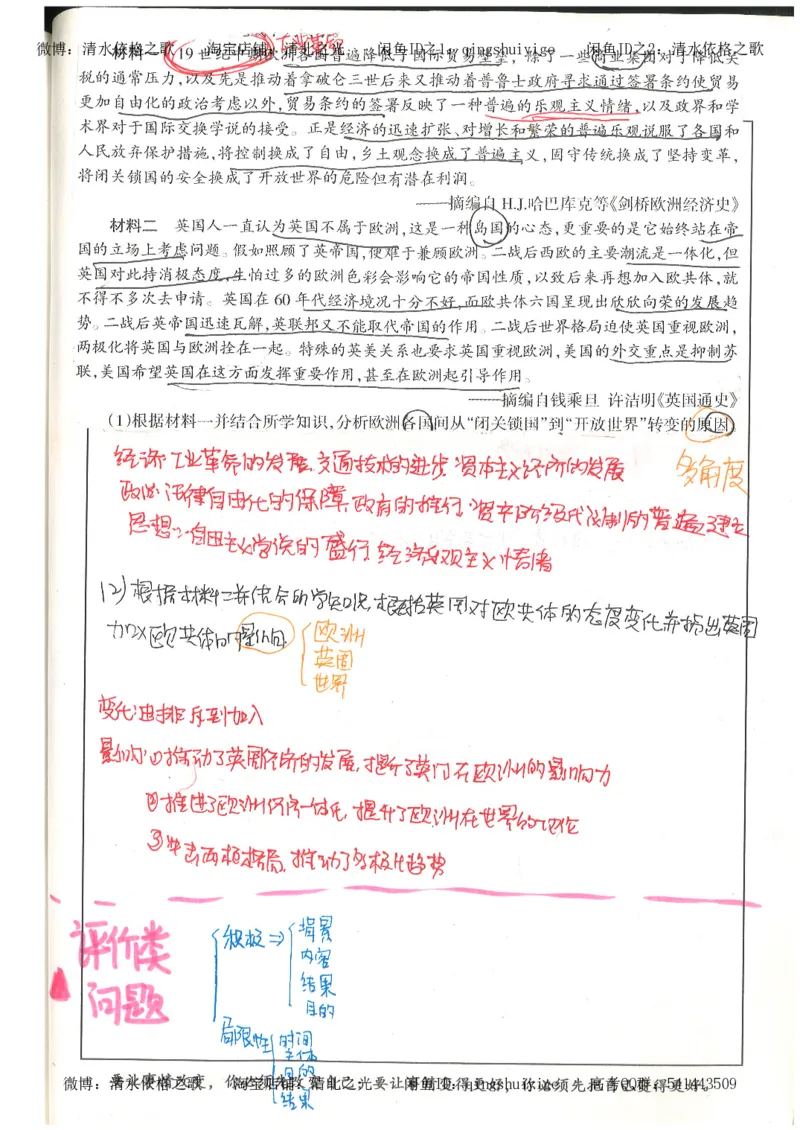 微博：清水依格之歌 淘宝店铺：清北之光 闲鱼ID之1：qingshuiyige 闲鱼ID之2：清水依格之歌
工业革命
材料一 19世纪中期欧洲各国普遍降低了国际贸易壁垒，除了一些商业集团对于降低关
税的通常压力，以及先是推动着拿破仑三世后来又推动着普鲁士政府寻求通过签署条约使贸易
更加自由化的政治考虑以外，贸易条约的签署反映了一种普遍的乐观主义情绪，以及政界和学
术界对于国际交换学说的接受。正是经济的迅速扩张、对增长和繁荣的普遍乐观说服了各国和
人民放弃保护措施，将控制换成了自由，乡土观念换成了普遍主义，固守传统换成了坚持变革，
将闭关锁国的安全换成了开放世界的危险但有潜在利润。
——摘编自H.J.哈巴库克等《剑桥欧洲经济史》
材料二 英国人一直认为英国不属于欧洲，这是一种岛国的心态，更重要的是它始终站在帝
国的立场上考虑问题。假如照顾了英帝国，便难于兼顾欧洲。二战后西欧的主要潮流是一体化，但
英国对此持消极态度，生怕过多的欧洲色彩会影响它的帝国性质，以致后来再想加入欧共体，就
不得不多次去申请。英国在60年代经济境况十分不好，而欧共体六国呈现出欣欣向荣的发展趋
势。二战后英帝国迅速瓦解，英联邦又不能取代帝国的作用。二战后世界格局迫使英国重视欧洲，
两极化将英国与欧洲拴在一起。特殊的英美关系也要求英国重视欧洲，美国的外交重点是抑制苏
联，美国希望英国在这方面发挥重要作用，甚至在欧洲起引导作用。
——摘编自钱乘旦 许洁明《英国通史》
(1)根据材料一并结合所学知识，分析欧洲各国间从“闭关锁国”到“开放世界”转变的原因。
多角度
经济：工业革命的发展，交通技术的进步，资本主义经济的发展
政治：法律自由化的保障，政府的推行，资产阶级代议制的普遍建立
思想：自由主义学说的盛行，经济乐观主义情绪
(2)根据材料二并结合所学知识，概括英国对欧共体的态度变化并指出英国
加入欧共体的影响
欧洲
英国
世界
变化：由排斥到加入
影响：①推动了英国经济的发展，提升了英国在欧洲的影响力
②推进了欧洲经济一体化，提升了欧洲在世界的地位
③冲击两极格局，推动了多极化趋势
评价类
问题
积极⇒
背景
内容
结果
目的
局限性
时间
主体
目的
结果
微博：清水依格之歌 淘宝店铺：清北之光 闲鱼ID：qingshuiyige 高考QQ群：541443509